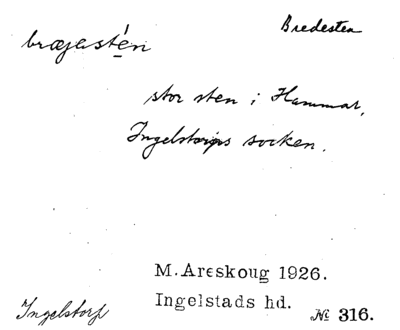 Bredesten
brœjastén
stor sten i Hammar,
Ingelstorps socken.
M. Areskoug 1926.
Ingelstads hd.
Ingelstorp
№ 316.